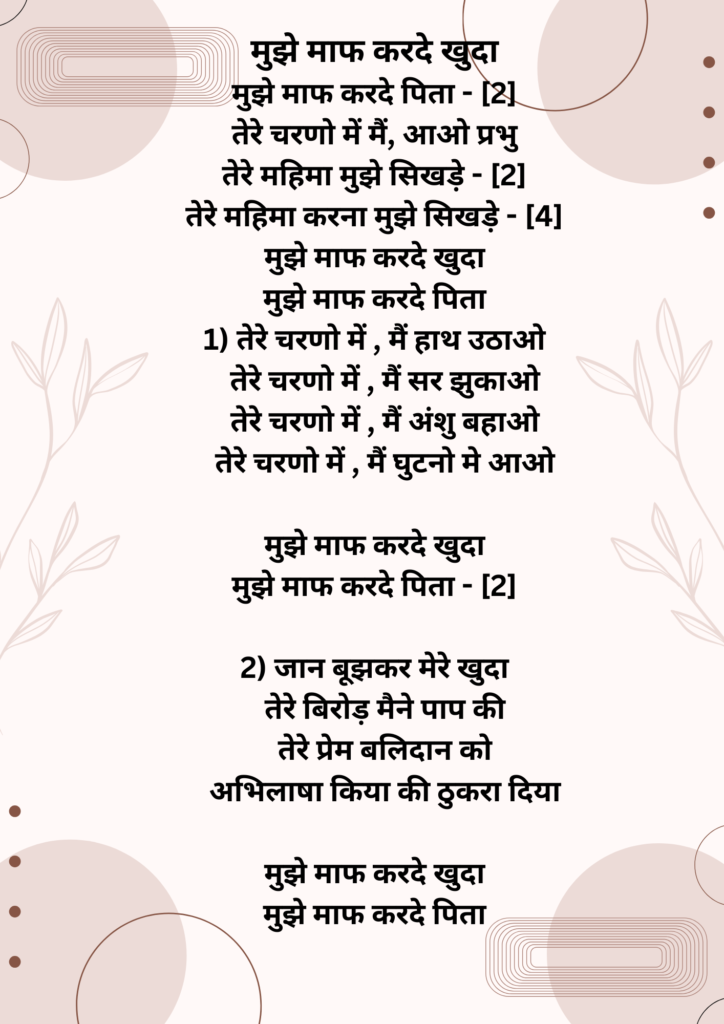 मुझे माफ करदे खुदा
मुझे माफ करदे पिता - [2]
तेरे चरणो में मैं, आओ प्रभु
तेरे महिमा मुझे सिखड़े - [2]
तेरे महिमा करना मुझे सिखड़े - [4]
मुझे माफ करदे खुदा
मुझे माफ करदे पिता
1) तेरे चरणो में , मैं हाथ उठाओ
तेरे चरणो में , मैं सर झुकाओ
तेरे चरणो में , मैं अंशु बहाओ
तेरे चरणो में , मैं घुटनो मे आओ
मुझे माफ करदे खुदा
मुझे माफ करदे पिता - [2]
2) जान बूझकर मेरे खुदा
तेरे बिरोड़ मैने पाप की
तेरे प्रेम बलिदान को
अभिलाषा किया की ठुकरा दिया
मुझे माफ करदे खुदा
मुझे माफ करदे पिता